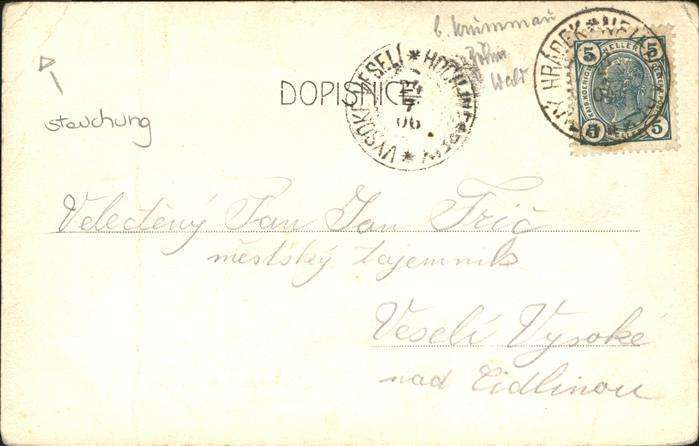 b. Krummau
Böhm
DOPISNICE
stauchung
VYSOKÉ VESELÍ * HOCH
24
7
06
HRÁDEK
5 HELLER 5
5 5
Velectěný Pan Jan Frič
městský tajemník
Veselí Vysoké
nad Cidlinou